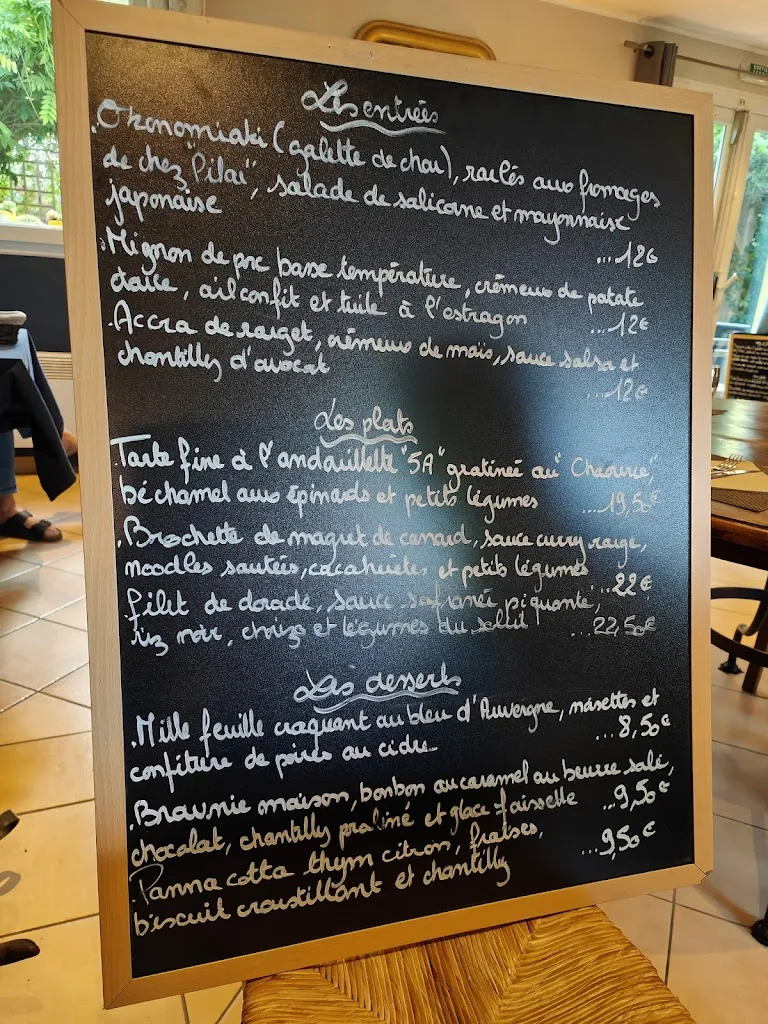 Les entrées
. Okonomiaki (galette de chou), raclés aux fromages
de chez "Pilai", salade de salicorne et mayonnaise
japonaise ...12€
. Mignon de porc basse température, crémeux de patate
douce, ail confit et tuile à l'estragon ...12€
. Accra de rouget, crémeux de maïs, sauce salsa et
chantilly d'avocat ...12€
Les plats
. Tarte fine à l'andouillette "5A" gratinée au "Chaource",
béchamel aux épinards et petits légumes ...19,50€
. Brochette de magret de canard, sauce curry rouge,
noodles sautées, cacahuètes et petits légumes ...22€
filet de dorade, sauce safranée piquante,
riz noir, chorizo et légumes du soleil ...22,50€
Les desserts
. Mille feuille craquant au bleu d'Auvergne, noisettes et
confiture de poires au cidre ...8,50€
. Brownie maison, bonbon au caramel au beurre salé,
chocolat, chantilly praliné et glace faisselle ...9,50€
. Panna cotta thym citron, fraises,
biscuit croustillant et chantilly ...9,50€